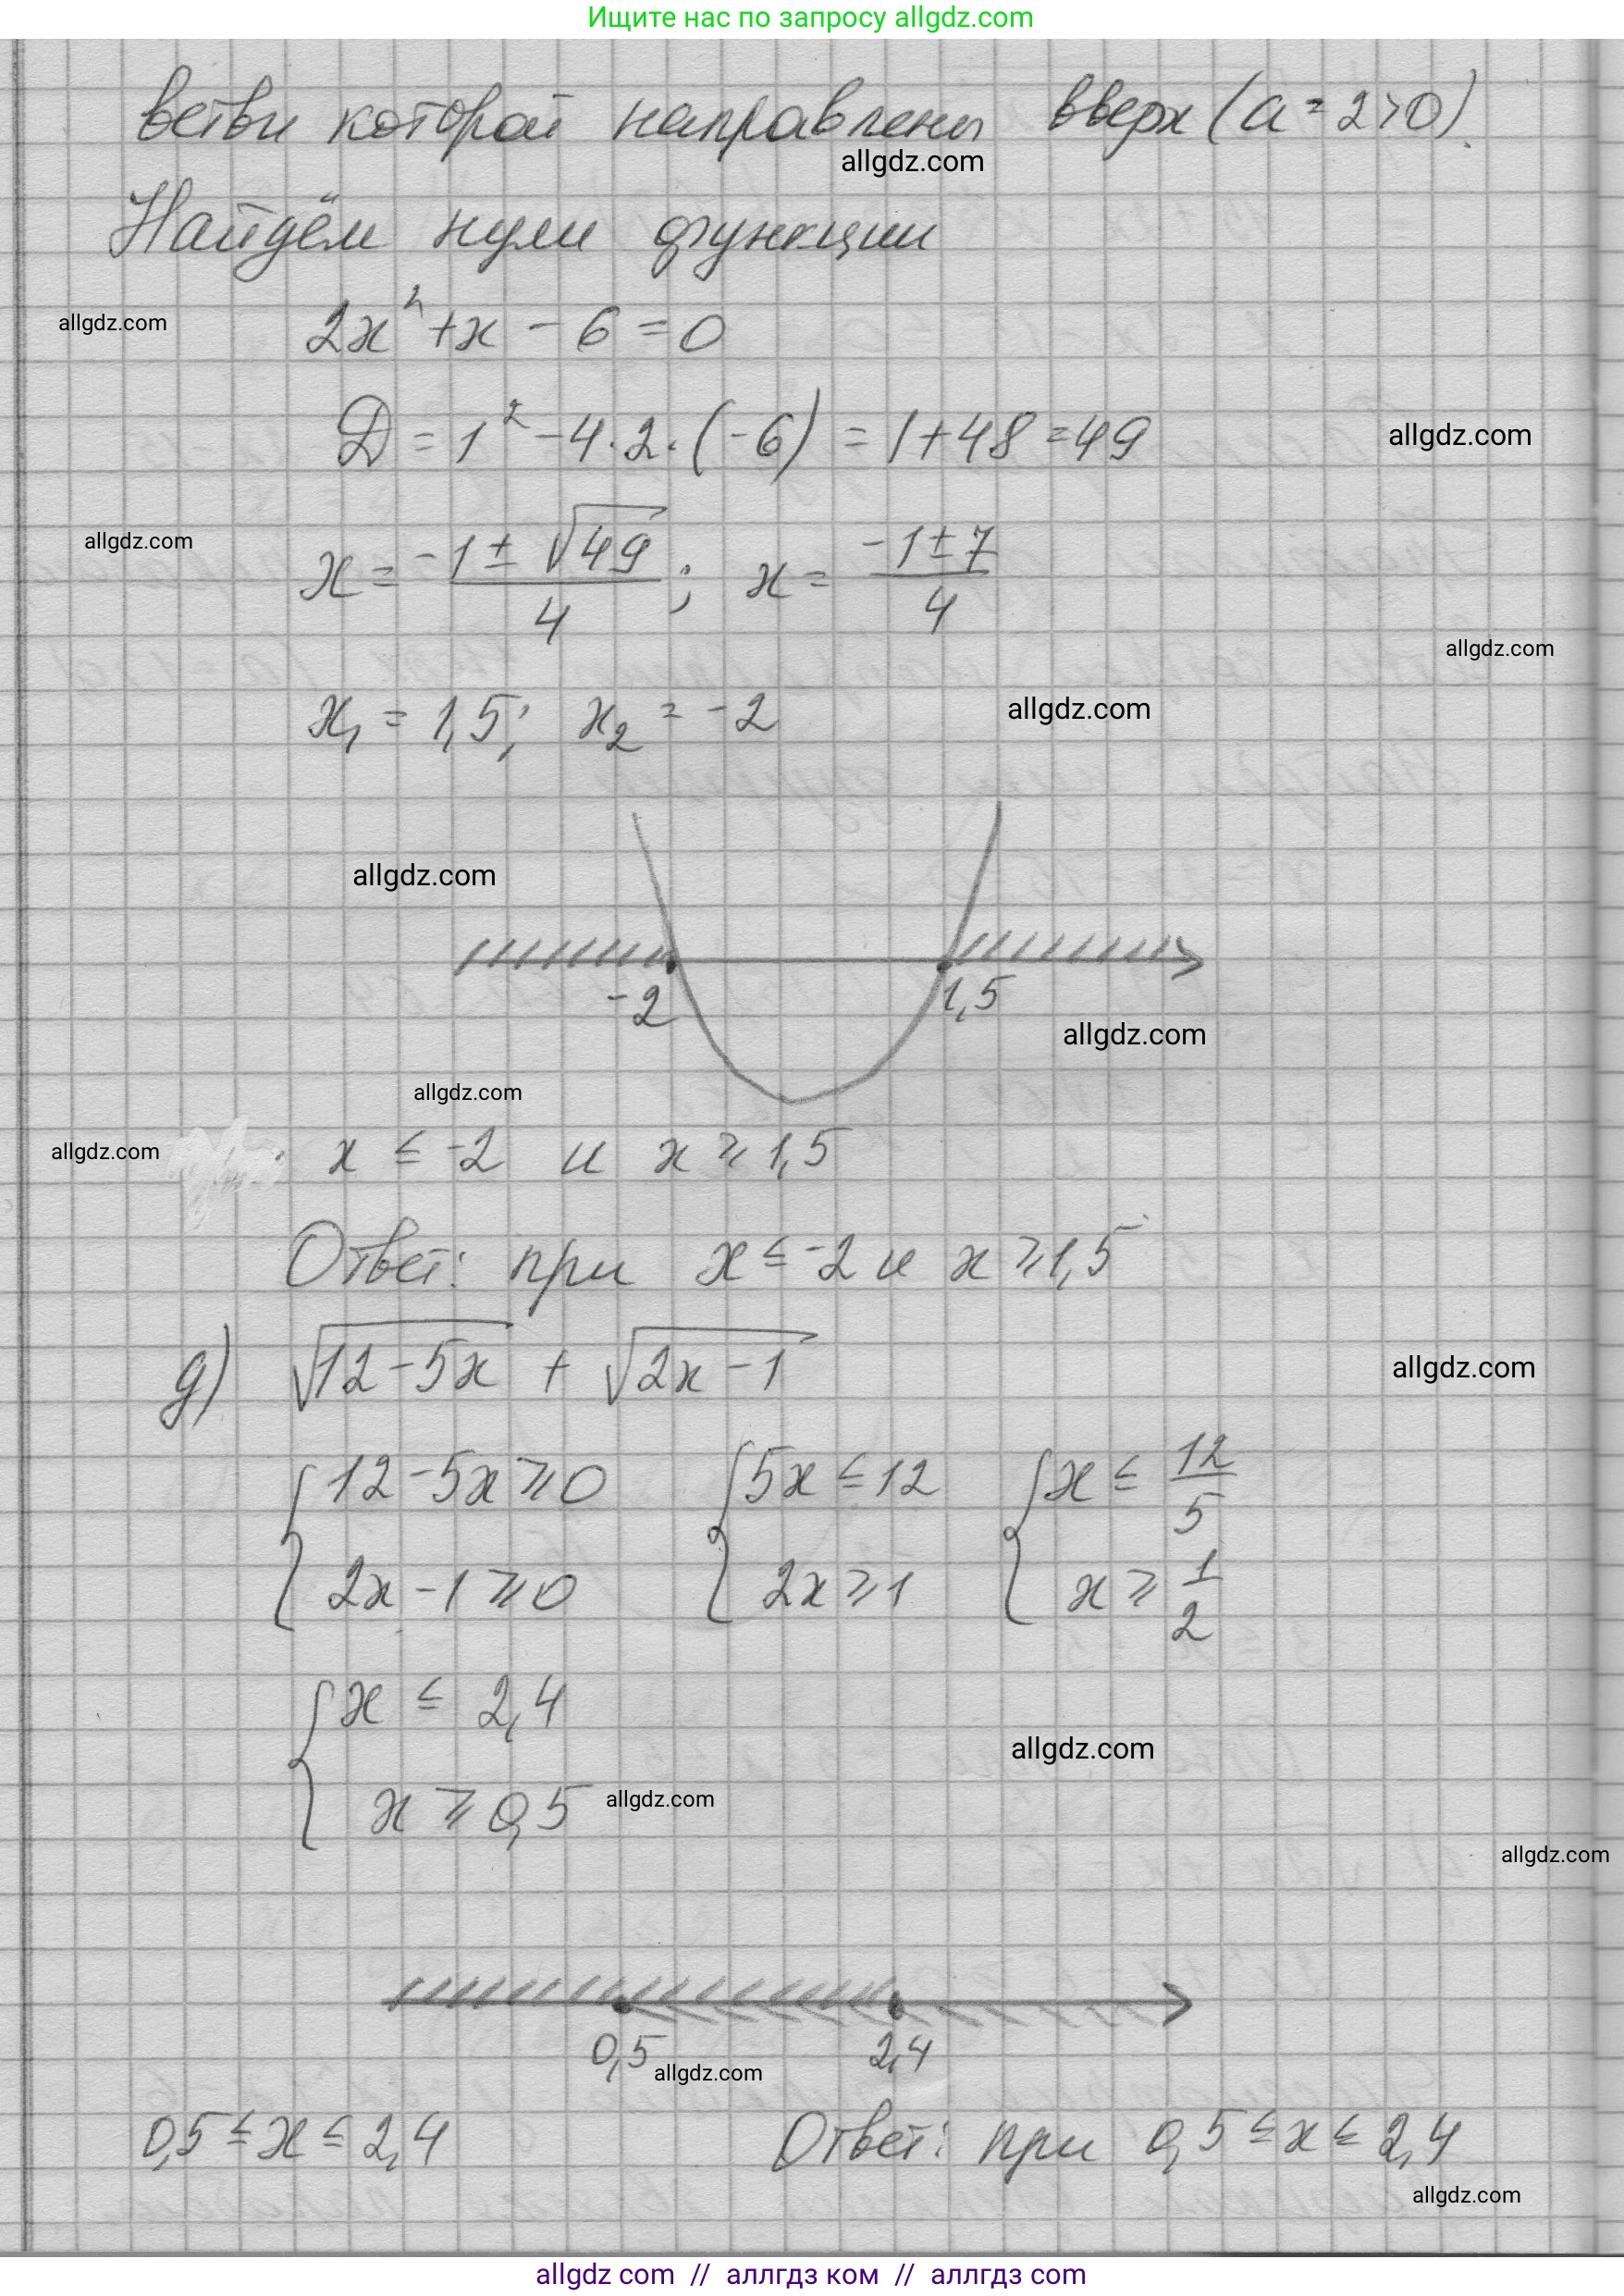 Ищите нас по запросу allgdz.com
ветви которой направлены вверх (a = 2 > 0).
allgdz.com
Найдём нули функции
allgdz.com
2x² + x - 6 = 0
D = 1² - 4 · 2 · (-6) = 1 + 48 = 49
allgdz.com
allgdz.com
x = (-1 ± √49)/4 ; x = (-1 ± 7)/4
allgdz.com
x₁ = 1,5; x₂ = -2
allgdz.com
allgdz.com
-2 1,5
allgdz.com
allgdz.com
allgdz.com
x ≤ -2 и x ≥ 1,5
Ответ: при x ≤ -2 и x ≥ 1,5
д) √(12 - 5x) + √(2x - 1)
allgdz.com
{ 12 - 5x ≥ 0 { 5x ≤ 12 { x ≤ 12/5
2x - 1 ≥ 0 2x ≥ 1 x ≥ 1/2
{ x ≤ 2,4
allgdz.com
x ≥ 0,5
allgdz.com
allgdz.com
0,5 2,4
allgdz.com
0,5 ≤ x ≤ 2,4 Ответ: при 0,5 ≤ x ≤ 2,4
allgdz.com
allgdz com // аллгдз ком // аллгдз com